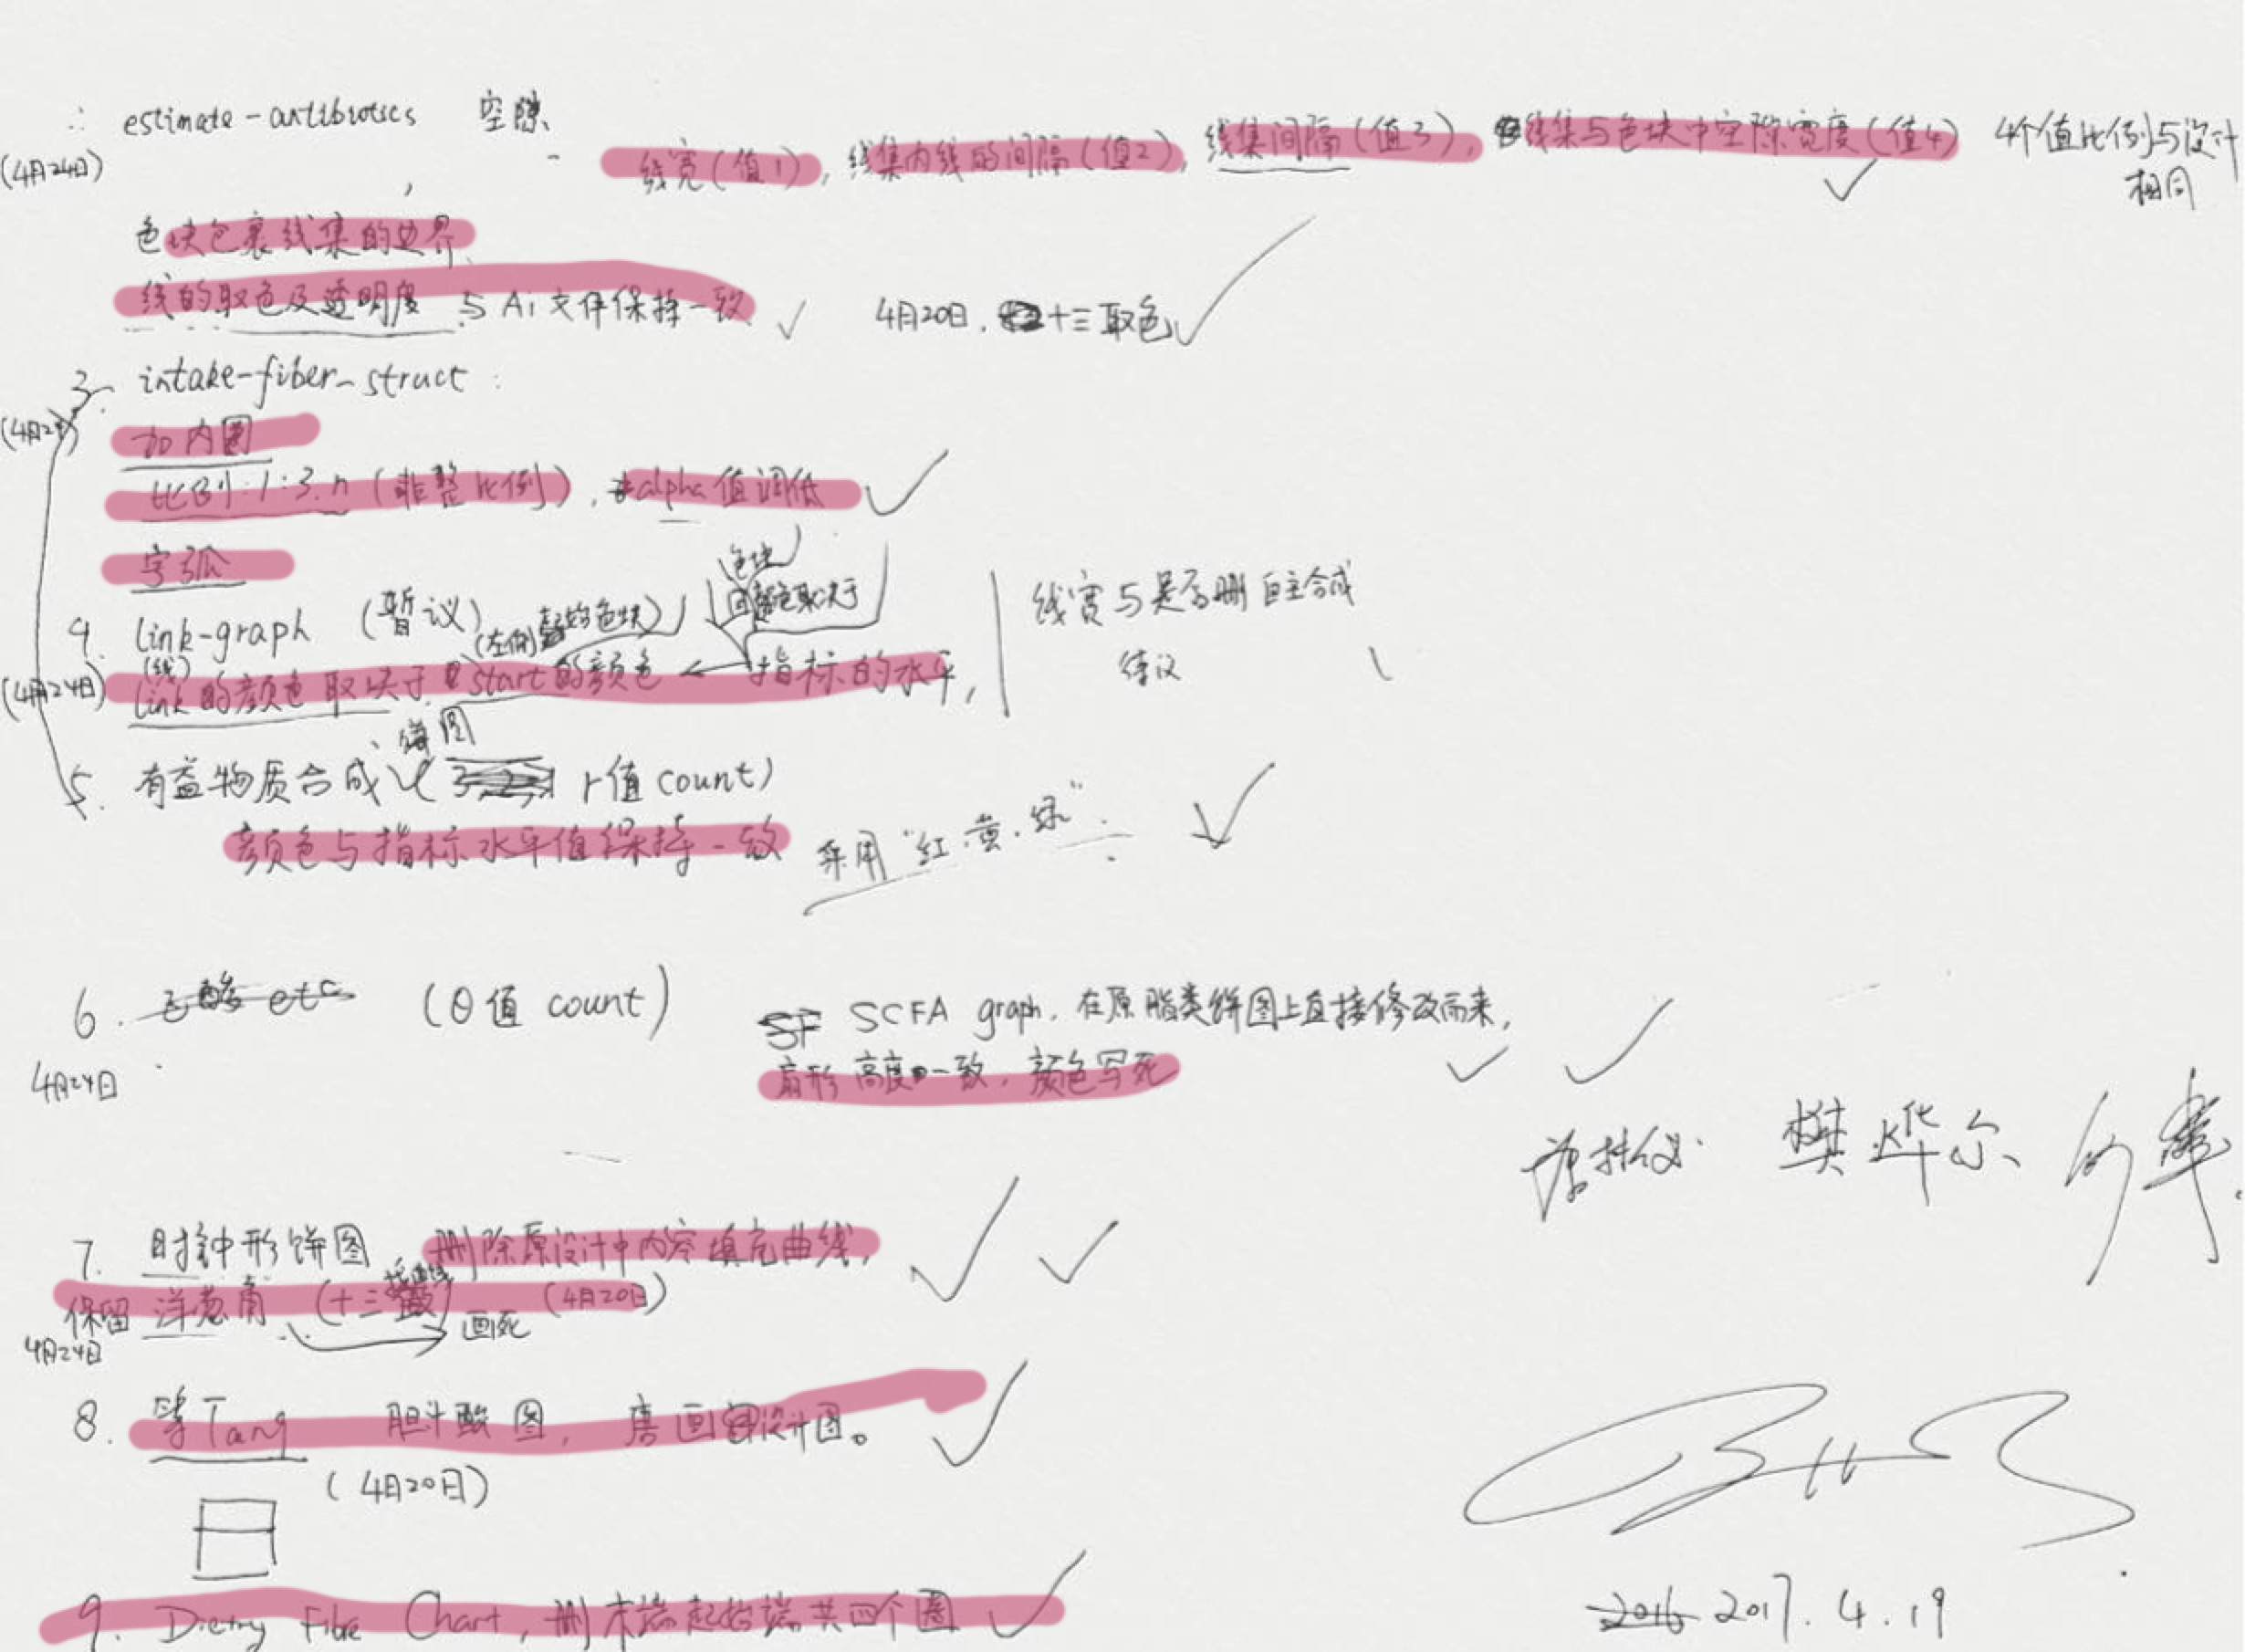 ∴ estimate-antibiotics 空隙、
(4月24日)
线宽(值1), 线集内线的间隔(值2), 线集间隔(值3), 线集与色块中空隙宽度(值4) 4个值比例与设计
相同
色块包裹线集的边界
线的取色及透明度与Ai文件保持一致
4月20日. 十三取色
3. intake-fiber_struct:
(4月24)
加内圈
比例:1:3.n(非整比例), alpha值调低
字弧
4. Link-graph (暂议)
(左侧起始色块)
色块
颜色取决于
(线)
(4月24日)
Link的颜色取决于start的颜色 ← 指标的水平,
线宽与是否删 自主合成
待议
5. 有益物质合成 (r值count)
饼图
颜色与指标水平值保持一致 采用"红.黄.绿".
6. 乙酸etc (θ值 count)
4月24日
SF SCFA graph. 在原脂类饼图上直接修改而来,
扇形高度一致, 颜色写死
樊烨尔
7. 时钟形饼图 删除原设计中内容填充曲线,
保留洋葱角 (十三) (4月20日)
画死
4月24日
8. 等Tang 胆汁酸图, 唐画设计图。
(4月20日)
9. Dietry Fibre Chart, 删末端起始端共四个圈
2016 2017.4.19